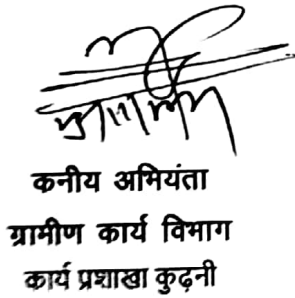 कनीय अभियंता
ग्रामीण कार्य विभाग
कार्य प्रशाखा कुढ़नी